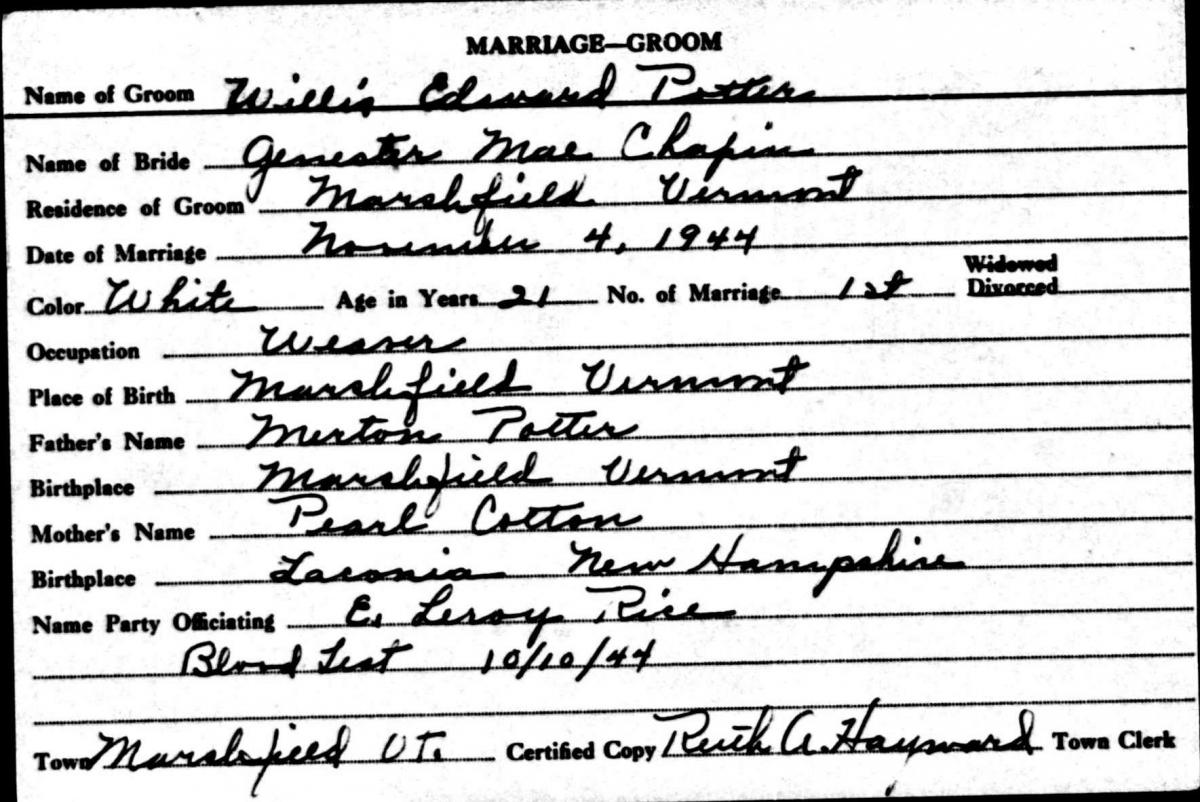 MARRIAGE—GROOM
Name of Groom Willis Edward Potter
Name of Bride Genester Mae Chapin
Residence of Groom Marshfield Vermont
Date of Marriage November 4, 1944
Widowed
Color White Age in Years 21 No. of Marriage 1st Divorced
Occupation Weaver
Place of Birth Marshfield Vermont
Father's Name Merton Potter
Birthplace Marshfield Vermont
Mother's Name Pearl Cotton
Birthplace Laconia New Hampshire
Name Party Officiating E. Leroy Rice
Blood Test 10/10/44
Town Marshfield VT. Certified Copy Ruth A. Hayward Town Clerk